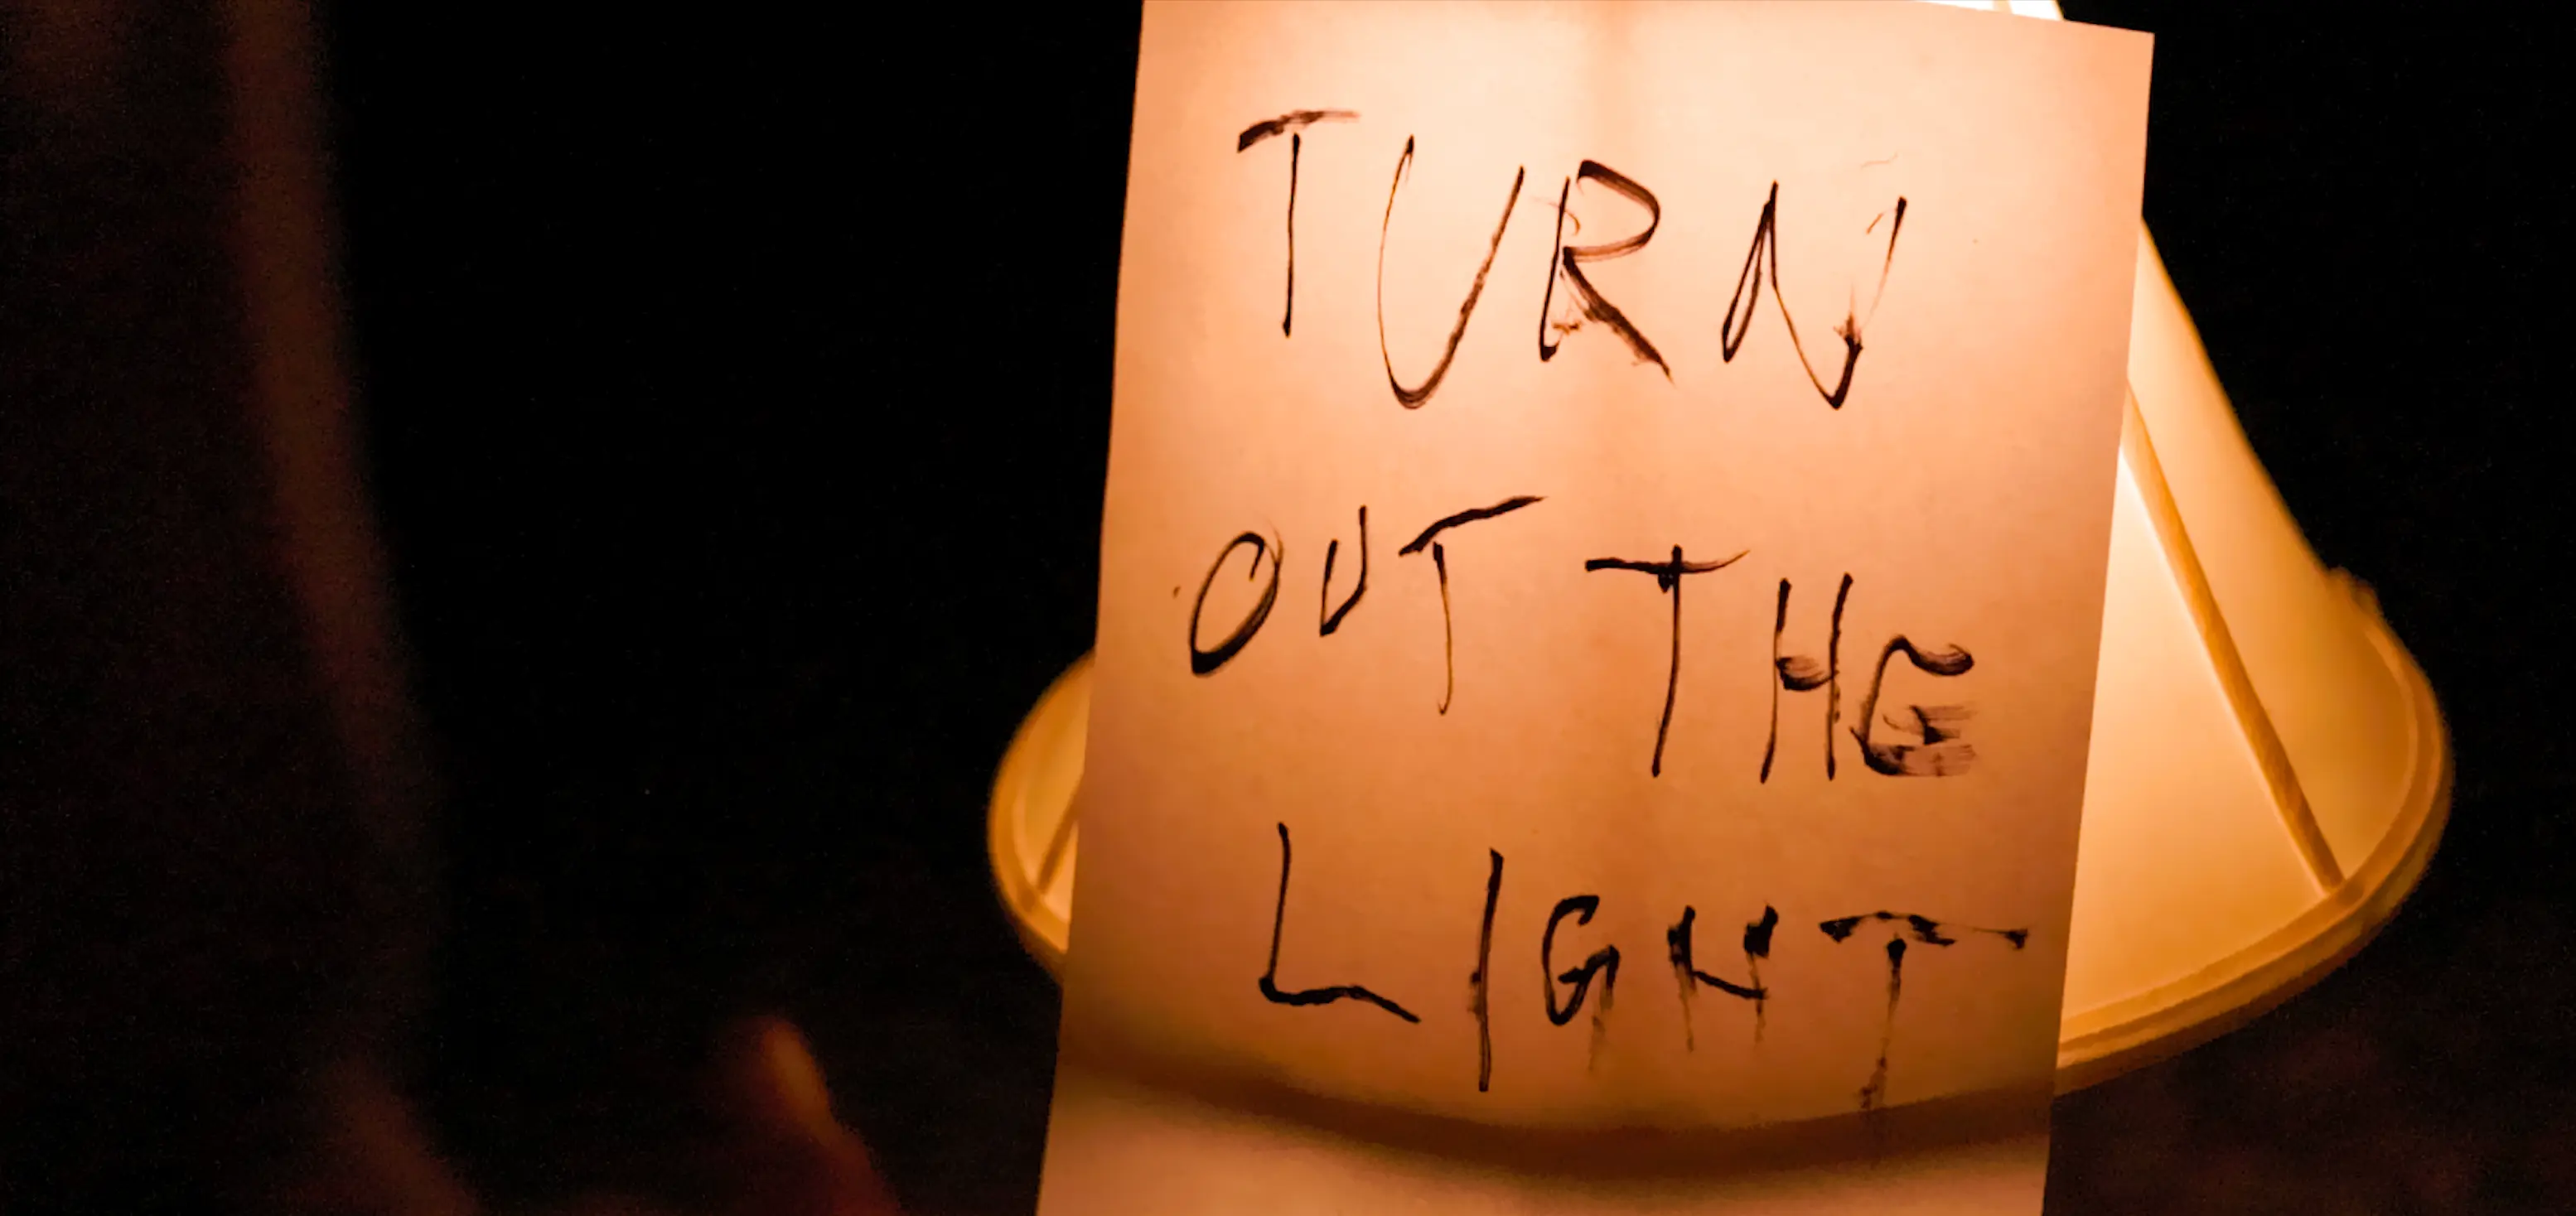 TURN
OUT THE
LIGHT